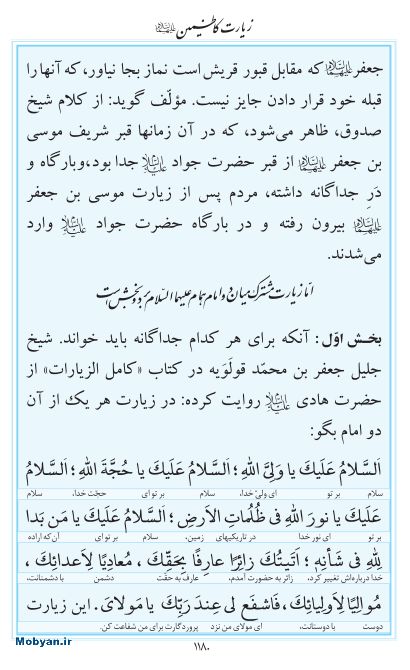 زیارت کاظمین علیهما السلام
جعفر علیهما السلام که مقابل قبور قریش است نماز بجا نیاور، که آنها را
قبله خود قرار دادن جایز نیست. مؤلّف گوید: از کلام شیخ
صدوق، ظاهر می‌شود، که در آن زمانها قبر شریف موسی
بن جعفر علیهما السلام از قبر حضرت جواد علیه السلام جدا بود، وبارگاه و
دَرِ جداگانه داشته، مردم پس از زیارت موسی بن جعفر
علیهما السلام بیرون رفته و در بارگاه حضرت جواد علیه السلام وارد
می‌شدند.
امّا زیارت مشترک میان دو امام همام علیهما السلام بر دو بخش است
بخش اوّل: آنکه برای هر کدام جداگانه باید خواند. شیخ
جلیل جعفر بن محمّد قولَوَیه در کتاب «کامل الزیارات» از
حضرت هادی علیه السلام روایت کرده: در زیارت هر یک از آن
دو امام بگو:
اَلسَّلامُ عَلَیكَ یا وَلِیَّ اللهِ ؛ اَلسَّلامُ عَلَیكَ یا حُجَّةَ اللهِ ؛ اَلسَّلامُ
سلام بر تو ای ولیّ خدا، سلام بر تو ای حجّت خدا، سلام
عَلَیكَ یا نورَ اللهِ فی ظُلُماتِ الاَرضِ ؛ اَلسَّلامُ عَلَیكَ یا مَن بَدا
بر تو ای نور خدا در تاریکیهای زمین، سلام بر تو ای آن که اراده
لِلّهِ فی شَأنِهِ ؛ اَتَیتُكَ زائِرًا عارِفًا بِحَقِّكَ ، مُعادِیًا لِاَعدائِكَ ،
خدا درباره‌اش تغییر کرد، زائر به حضورت آمدم، عارف به حقّت دشمن با دشمنانت،
مُوالِیًا لِاَولِیائِكَ، فَاشفَع لی عِندَ رَبِّكَ یا مَولایَ. این زیارت
دوست با دوستانت، ای مولای من نزد پروردگارت برای من شفاعت کن.
Mobyan.ir
۱۱۸۰